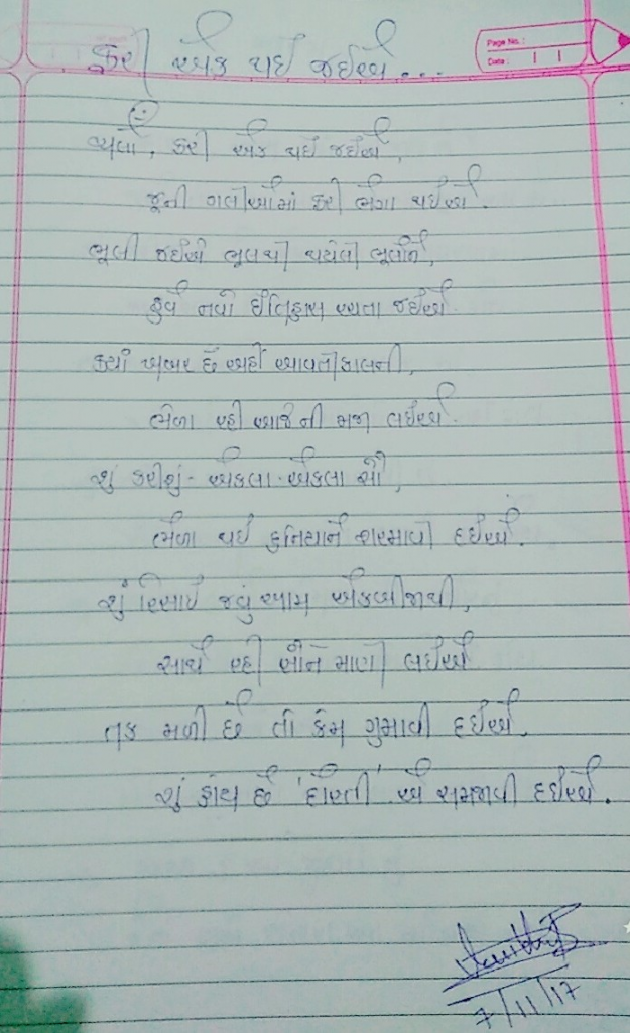 ફરી એક થઈ જઈએ...
Page No.:
Date:
ચાલો, ફરી એક થઈ જઈએ,
જૂની ગલીઓમાં ફરી ભેગા થઈએ.
ભૂલી જઈએ ભૂલથી થયેલી ભૂલોને,
હવે નવો ઈતિહાસ રચતા જઈએ.
ક્યાં ખબર છે અહીં આવતીકાલની,
ભેળા રહી આજેની મજા લઈએ.
શું કરીશું - એકલા - એકલા સૌ,
ભેળા થઈ દુનિયાને શરમાવી દઈએ.
શું રિસાઈ જવું આમ એકબીજાથી,
સાથે રહી સૌને માણી લઈએ
તક મળી છે તો કેમ ગુમાવી દઈએ,
શું હોય છે 'દોસ્તી' એ સમજાવી દઈએ.
7/11/17